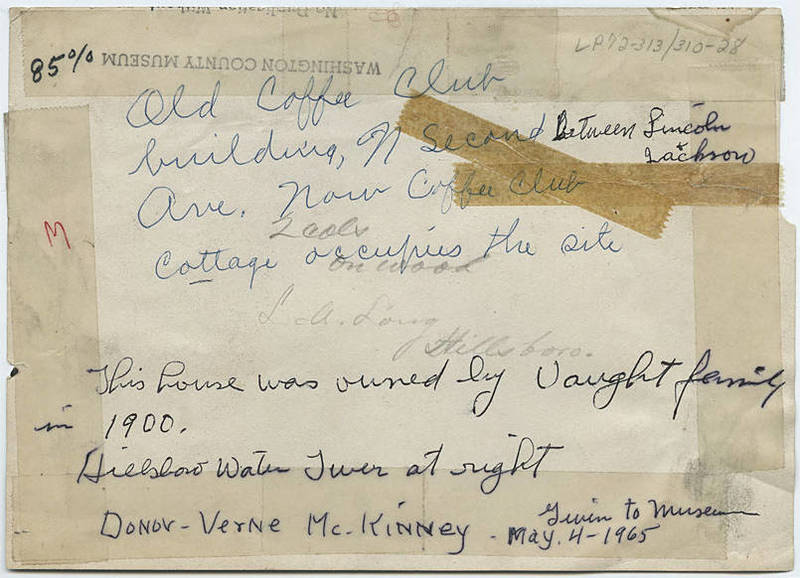 No Duplication Without
LP72-313/310-28
85%
WASHINGTON COUNTY MUSEUM
Old Coffee Club
building, N Second between Lincoln
& Jackson
Ave. Now Coffee Club
2 cols
cottage occupies the site
on wood
L. A. Long
Hillsboro.
M
This house was owned by Vaught family
in 1900.
Hillsboro Water Tower at right
Donor - Verne McKinney - Given to Museum
May. 4-1965